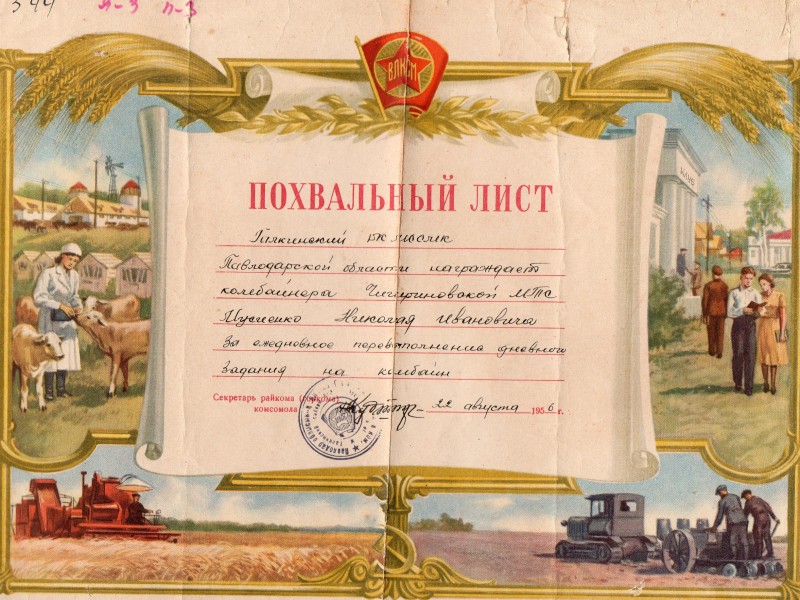 344 п-3 п-3
ВЛКСМ
КЛУБ
ПОХВАЛЬНЫЙ ЛИСТ
РК ЛКСМК
Павлодарской области награждает
комбайнера Чигириновской МТС
Мусиенко Николая Ивановича
За ежедневное перевыполнение дневного
задания на комбайн
Секретарь райкома (горкома)
комсомола
22 августа 1956 г.